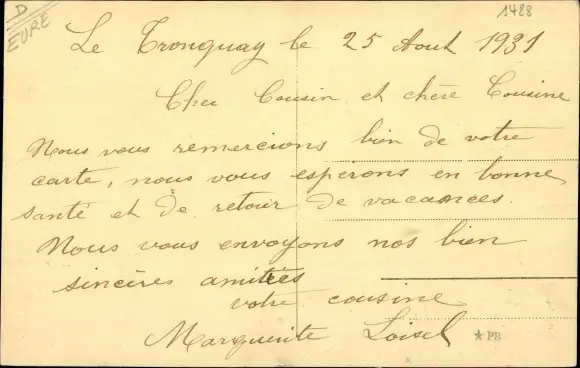 D
EURE
1428
Le Tronquay le 25 Aout 1931
Cher Cousin et chère Cousine
Nous vous remercions bien de votre
carte, nous vous esperons en bonne
santé et de retour de vacances.
Nous vous envoyons nos bien
sincères amitiées
votre cousine
Marguerite Loisel
★ PR